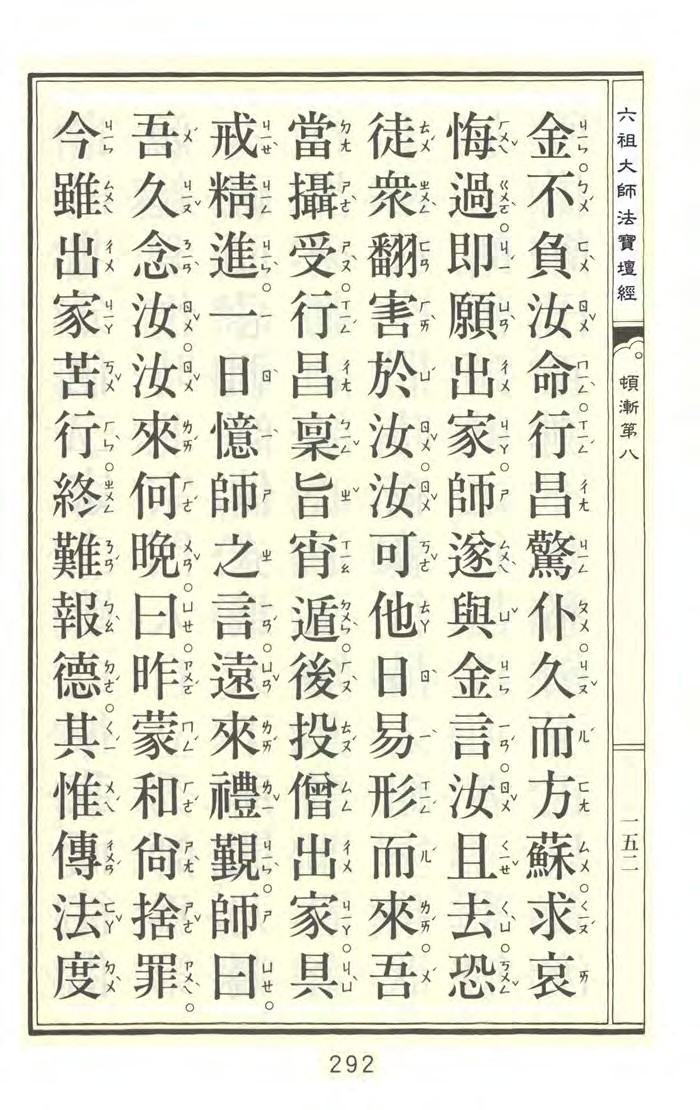 六祖大師法寶壇經
頓漸第八
一五二
金不負汝命。行昌驚仆久而方蘇。求哀
悔過。即願出家。師遂與金言。汝且去。恐
徒衆翻害於汝。汝可他日易形而來。吾
當攝受。行昌稟旨宵遁。後投僧出家。具
戒精進。一日憶師之言。遠來禮覲。師曰。
吾久念汝。汝來何晚。曰。昨蒙和尙捨罪。
今雖出家苦行。終難報德。其惟傳法度
292